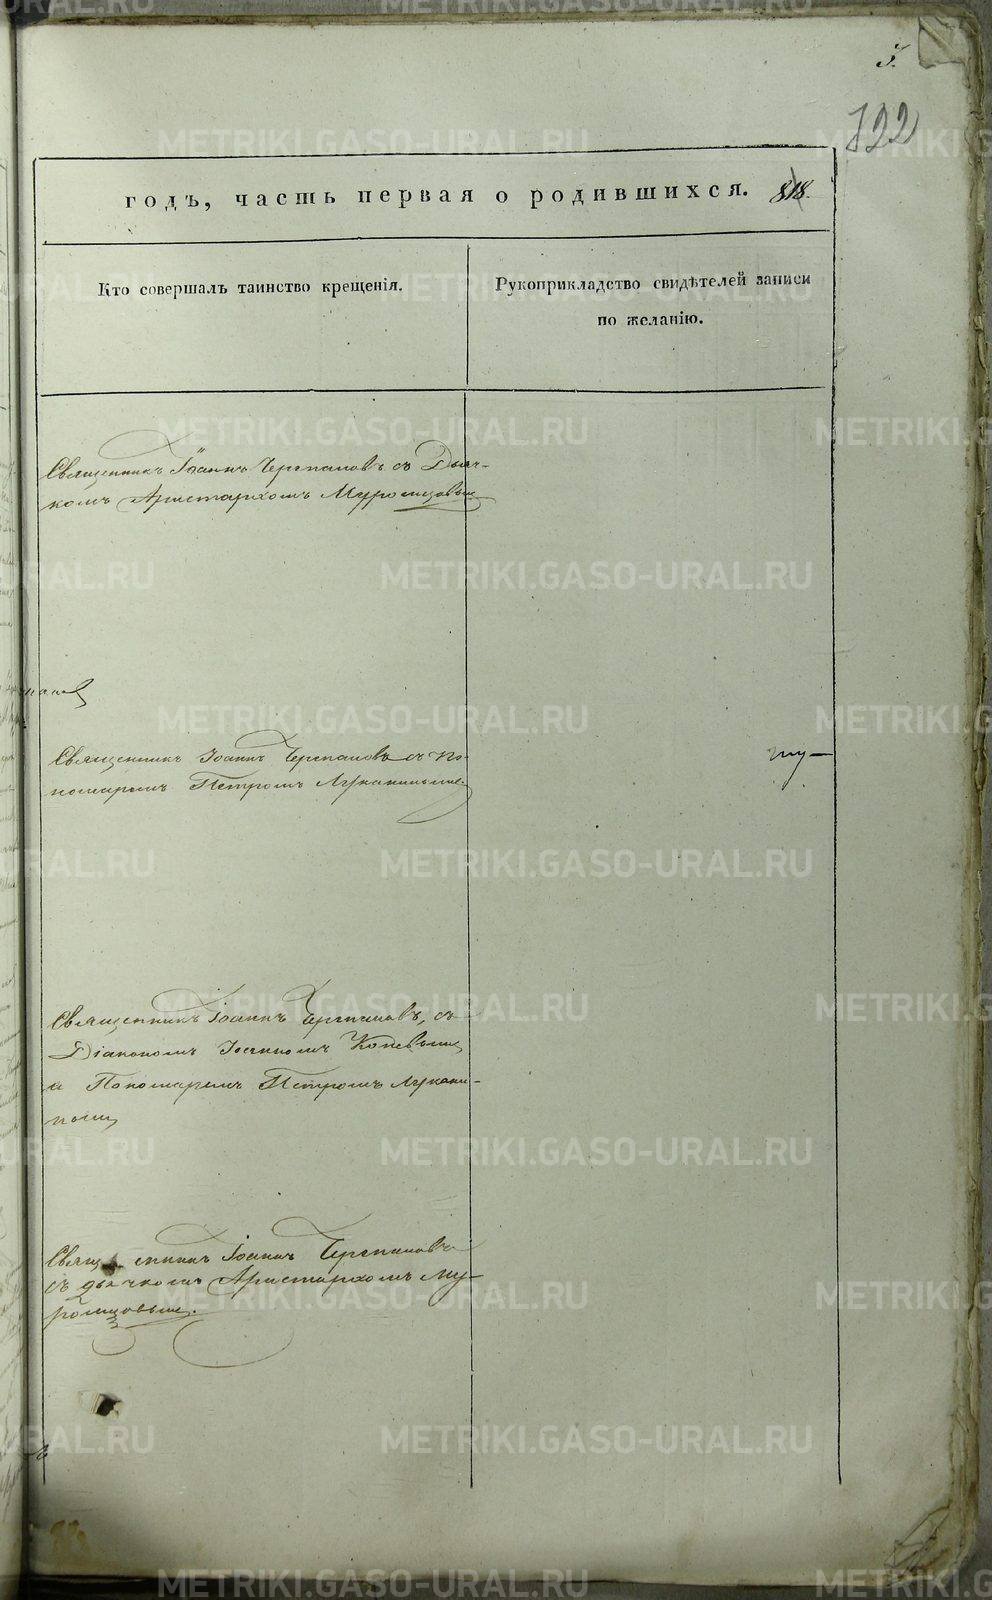 3.
122
годъ, часть первая о родившихся. 818.
Кто совершалъ таинство крещенія.
Рукоприкладство свидѣтелей записи
по желанію.
Священникъ Іоаннъ Черепановъ съ Дьяч-
комъ Аристархомъ Муромцовымъ
Священникъ Іоаннъ Черепановъ съ По-
номаремъ Петромъ Луканинымъ.
ту-
Священникъ Іоаннъ Черепановъ, съ
Діакономъ Іоанномъ Коневымъ
и Пономаремъ Петромъ Лукани-
нымъ
Священникъ Іоаннъ Черепановъ
съ дьячкомъ Аристархомъ Му-
ромцовымъ.
METRIKI.GASO-URAL.RU